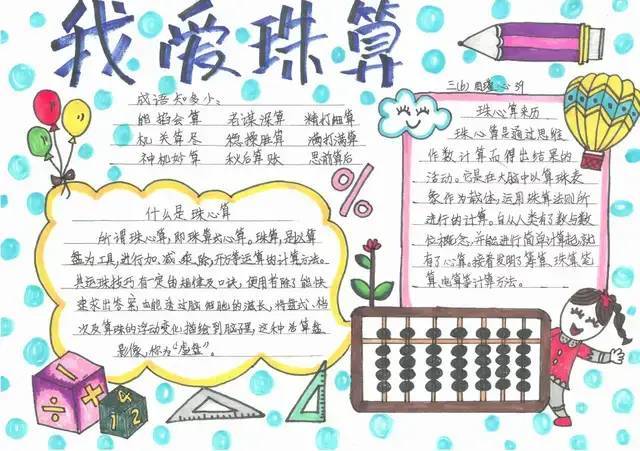 我爱珠算
三(6) 39
成语知多少:
能掐会算 老谋深算 精打细算
机关算尽 稳操胜算 满打满算
神机妙算 秋后算账 思前算后
什么是珠心算
所谓珠心算,即珠算式心算。珠算,是以算
盘为工具,进行加、减、乘、除、开方等运算的计算方法。
其运珠技巧有一定的规律及口诀,使用者除了能快
速求出答案,也能透过脑细胞的滋长,将盘式、档
次及算珠的浮动变化描绘到脑子里,这种为算盘
影像,称为“虚盘”。
珠心算来历
珠心算是通过思维
作数计算而得出结果的
活动。它是在大脑中以算珠表
象作为载体,运用珠算法则所
进行的计算。自从人类有了数与数
位概念,并能进行简单计算起,就有
了心算。接着发明了筹算、珠算、笔
算、电算等计算方法。
%
1
÷
+
×
4
2
12